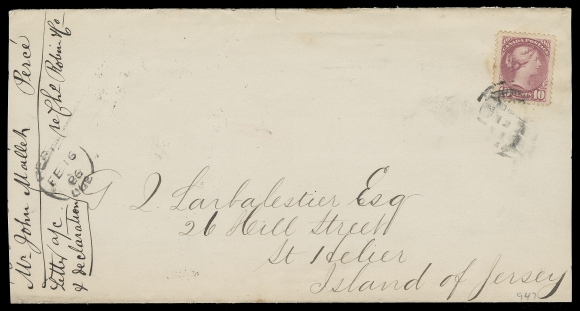 CANADA POSTAGE
CENTS 10
Mr John Malleh Percé
Letter a/c re Chs Robin & Co
& declaration
FE 16
86
QUE
G J Larbalestier Esq
26 Hill Street
St Helier
Island of Jersey
947